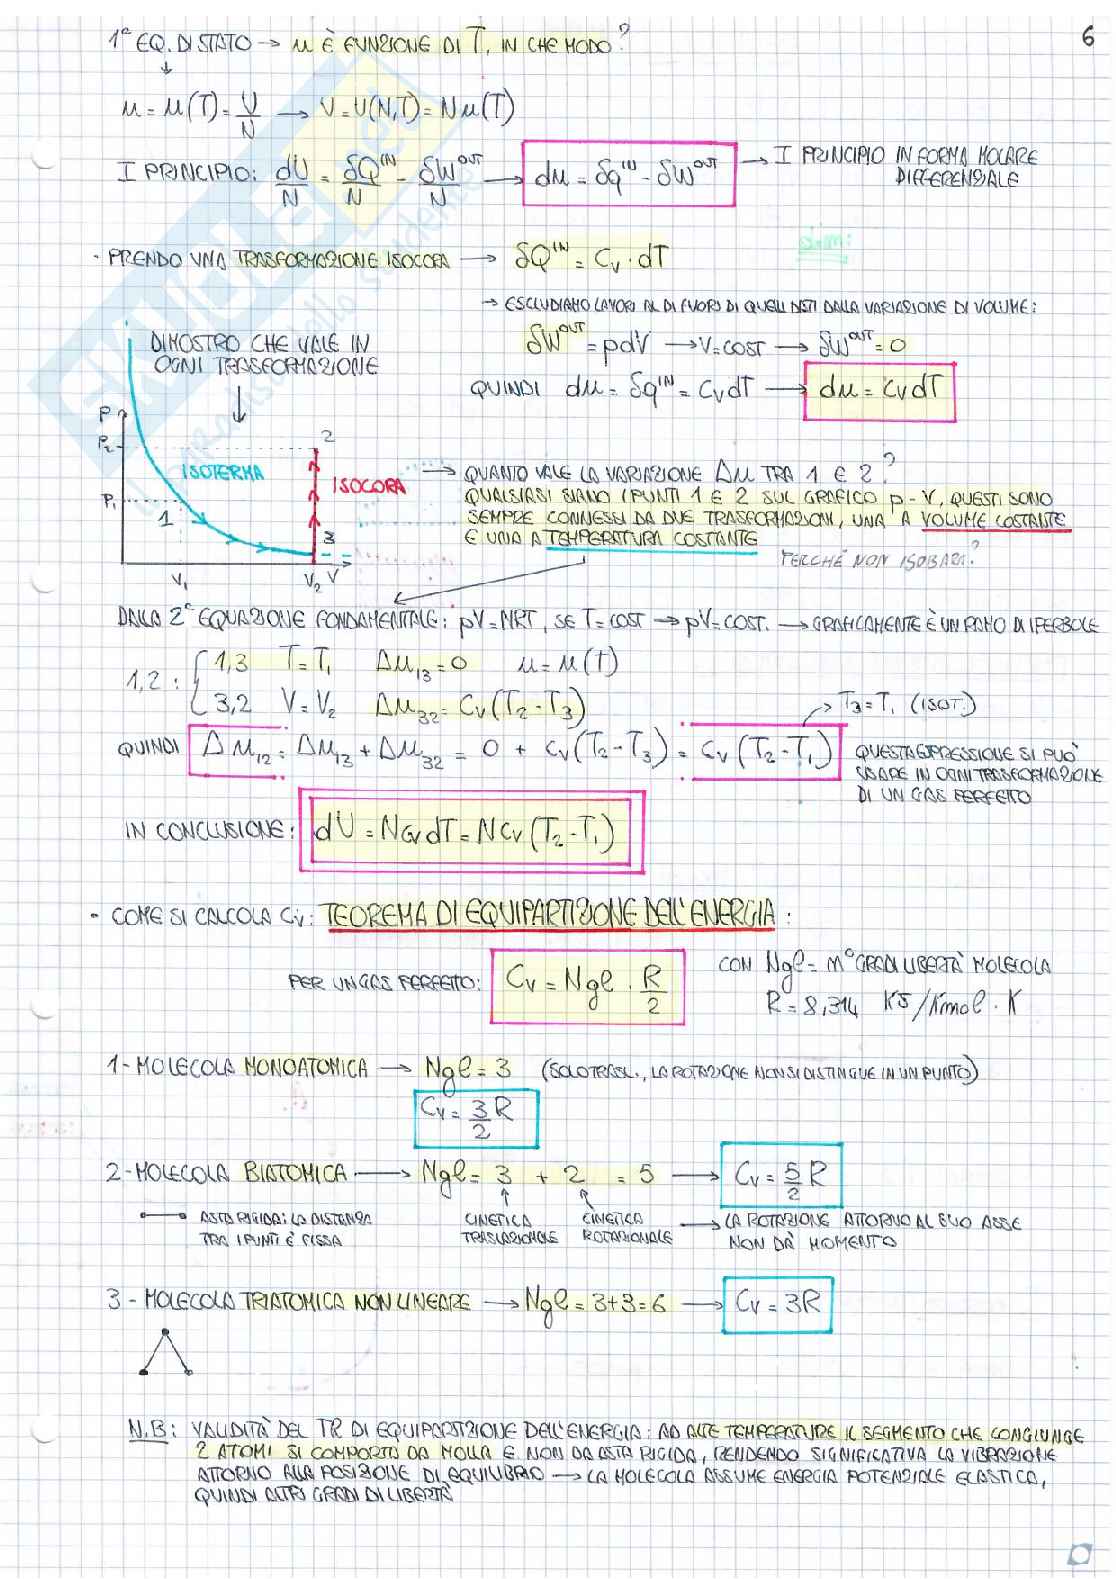 6
1ª EQ. DI STATO → u È FUNZIONE DI T, IN CHE MODO?
↓
u = u(T) = U/N → U = U(N,T) = N u(T)
I PRINCIPIO: dU/N = δQ^IN/N - δW^OUT/N → du = δq^IN - δW^OUT → I PRINCIPIO IN FORMA MOLARE
DIFFERENZIALE
· PRENDO UNA TRASFORMAZIONE ISOCORA → δQ^IN = Cv · dT
→ ESCLUDIAMO LAVORI AL DI FUORI DI QUELLI DATI DALLA VARIAZIONE DI VOLUME:
δW^OUT = pdV → V=COST → δW^OUT = 0
QUINDI du = δq^IN = Cv dT → du = Cv dT
DIMOSTRO CHE VALE IN
OGNI TRASFORMAZIONE
P
P2
P1
ISOTERMA
ISOCORA
1
2
3
V1
V2
V
→ QUANTO VALE LA VARIAZIONE Δu TRA 1 E 2?
QUALSIASI SIANO I PUNTI 1 E 2 SUL GRAFICO p-V, QUESTI SONO
SEMPRE CONNESSI DA DUE TRASFORMAZIONI, UNA A VOLUME COSTANTE
E UNA A TEMPERATURA COSTANTE
PERCHÈ NON ISOBARA?
DALLA 2ª EQUAZIONE FONDAMENTALE: pV=NRT, SE T=COST → pV=COST. → GRAFICAMENTE È UN RAMO DI IPERBOLE
1,2 : { 1,3 T=T1 Δu13=0 u=u(T)
3,2 V=V2 Δu32=Cv(T2-T3)
→ T3=T1 (ISOT.)
QUINDI Δu12 = Δu13 + Δu32 = 0 + Cv(T2-T3) = Cv(T2-T1)
QUESTA ESPRESSIONE SI PUÒ
USARE IN OGNI TRASFORMAZIONE
DI UN GAS PERFETTO
IN CONCLUSIONE: dU = NCv dT = NCv(T2-T1)
· COME SI CALCOLA Cv: TEOREMA DI EQUIPARTIZIONE DELL'ENERGIA:
PER UN GAS PERFETTO: Cv = Ngl · R/2
CON Ngl = n° GRADI LIBERTÀ MOLECOLA
R = 8,314 KJ/Kmol·K
1-MOLECOLA MONOATOMICA → Ngl = 3 (SOLO TRASL., LA ROTAZIONE NON SI DISTINGUE IN UN PUNTO)
Cv = 3/2 R
2-MOLECOLA BIATOMICA → Ngl = 3 + 2 = 5 → Cv = 5/2 R
ASTA RIGIDA: LA DISTANZA
TRA I PUNTI È FISSA
CINETICA
TRASLAZIONALE
CINETICA
ROTAZIONALE
→ LA ROTAZIONE ATTORNO AL SUO ASSE
NON DÀ MOMENTO
3-MOLECOLA TRIATOMICA NON LINEARE → Ngl = 3+3=6 → Cv = 3R
N.B: VALIDITÀ DEL TR DI EQUIPARTIZIONE DELL'ENERGIA: AD ALTE TEMPERATURE IL SEGMENTO CHE CONGIUNGE
2 ATOMI SI COMPORTA DA MOLLA E NON DA ASTA RIGIDA, RENDENDO SIGNIFICATIVA LA VIBRAZIONE
ATTORNO ALLA POSIZIONE DI EQUILIBRIO → LA MOLECOLA ASSUME ENERGIA POTENZIALE ELASTICA,
QUINDI ALTRI GRADI DI LIBERTÀ